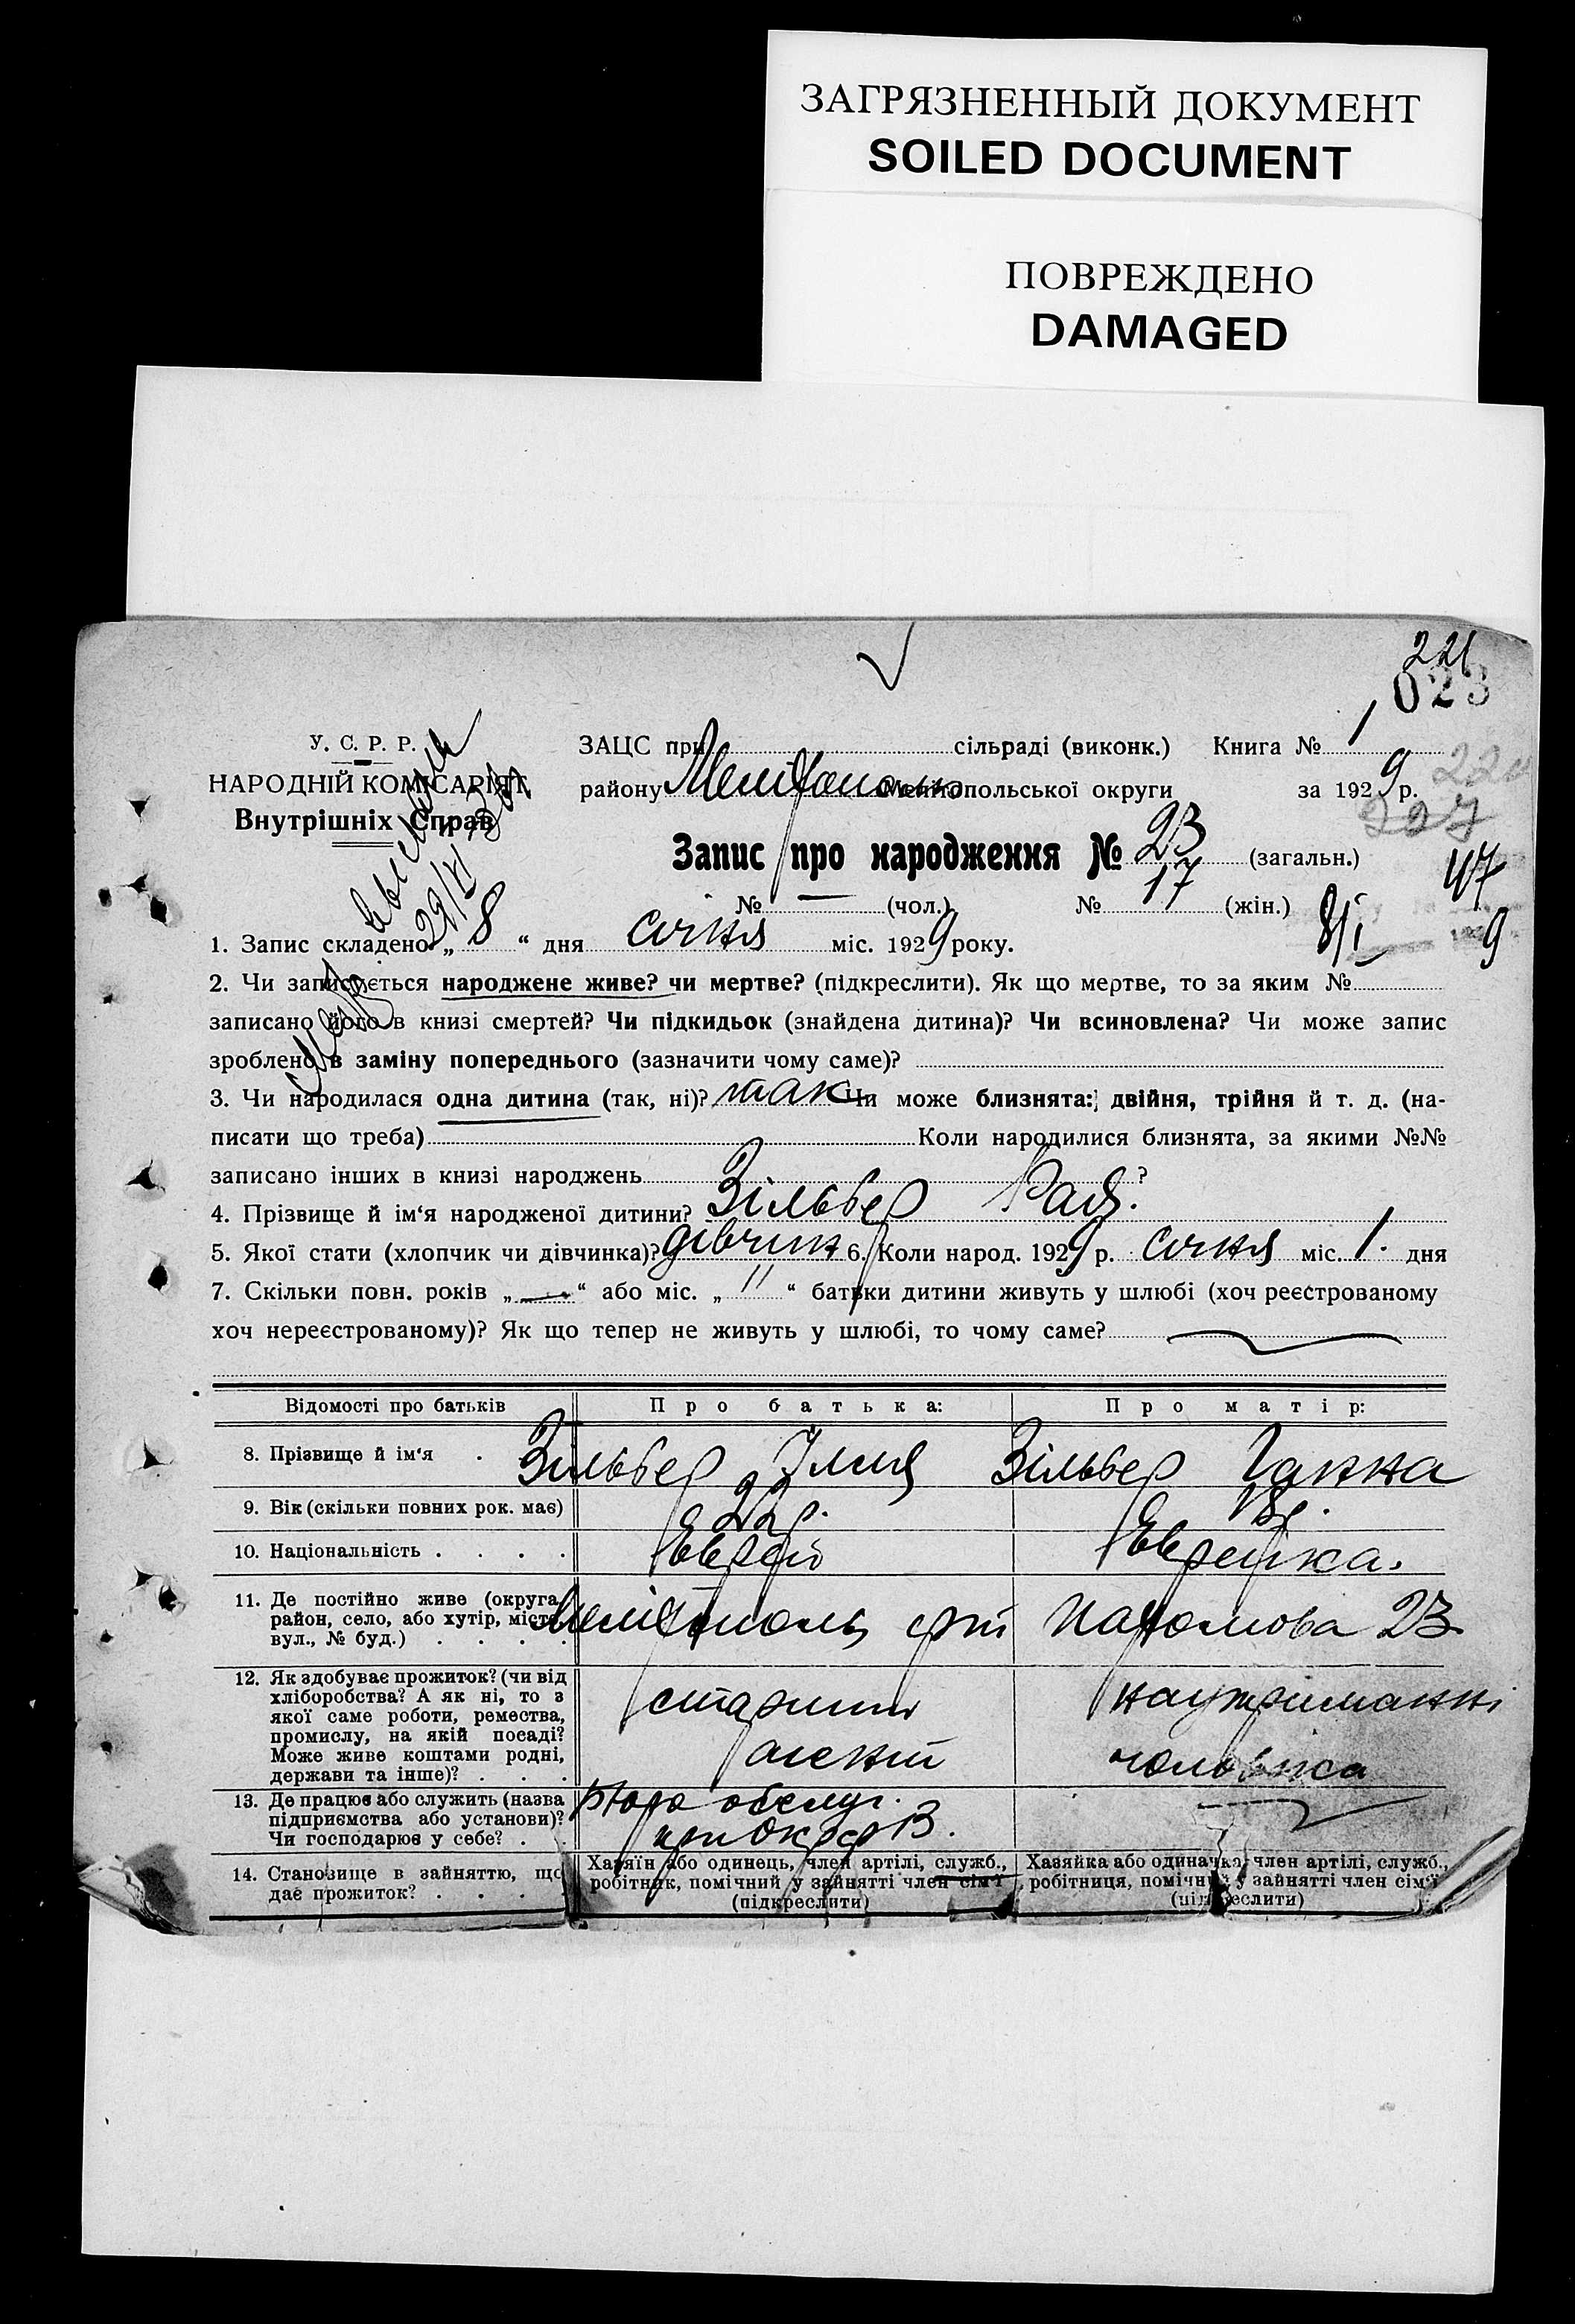 ЗАГРЯЗНЕННЫЙ ДОКУМЕНТ
SOILED DOCUMENT
ПОВРЕЖДЕНО
DAMAGED
221
023
У. С. Р. Р.
НАРОДНІЙ КОМІСАРІЯТ
Внутрішніх Справ
ЗАЦС при сільраді (виконк.) Книга № 1
району Мелітополь Мелітопольської округи за 1929 р.
220
227
Запис про народження № 23 (загальн.)
47
№ — (чол.) № 17 (жін.)
8/I 9
1. Запис складено „ 8 “ дня січня міс. 1929 року.
2. Чи записується народжене живе? чи мертве? (підкреслити). Як що мертве, то за яким №
записано його в книзі смертей? Чи підкидьок (знайдена дитина)? Чи всиновлена? Чи може запис
зроблено в заміну попереднього (зазначити чому саме)?
3. Чи народилася одна дитина (так, ні)? так Чи може близнята: двійня, трійня й т. д. (на-
писати що треба) Коли народилися близнята, за якими №№
записано інших в книзі народжень ?
4. Прізвище й ім‘я народженої дитини? Зільбер Рая.
5. Якої стати (хлопчик чи дівчинка)? дівчинк 6. Коли народ. 1929 р. січня міс. 1. дня
7. Скільки повн. років „ — “ або міс. „ 11 “ батьки дитини живуть у шлюбі (хоч реєстрованому
хоч нереєстрованому)? Як що тепер не живуть у шлюбі, то чому саме?
Відомості про батьків Про батька: Про матір:
8. Прізвище й ім‘я . Зільбер Ілля Зільбер Ганна
9. Вік (скільки повних рок. має) 22 р. 18 р.
10. Національність . . . . Еврей Еврейка.
11. Де постійно живе (округа,
район, село, або хутір, місто,
вул., № буд.) . . . . Мелітополь 23
12. Як здобуває прожиток? (чи від
хліборобства? А як ні, то з
якої саме роботи, ремества,
промислу, на якій посаді?
Може живе коштами родні,
держави та інше)? . . .
старший наутриманні
агент чоловіка
13. Де працює або служить (назва
підприємства або установи)?
Чи господарює у себе? . .
Бюро обслуг.
при
14. Становище в зайняттю, що
дає прожиток? . . . .
Хазяїн або одинець, член артілі, служб.,
робітник, помічний у зайнятті член сім‘ї
(підкреслити)
Хазяйка або одиначка, член артілі, служб.,
робітниця, помічний у зайнятті член сім‘ї
(підкреслити)